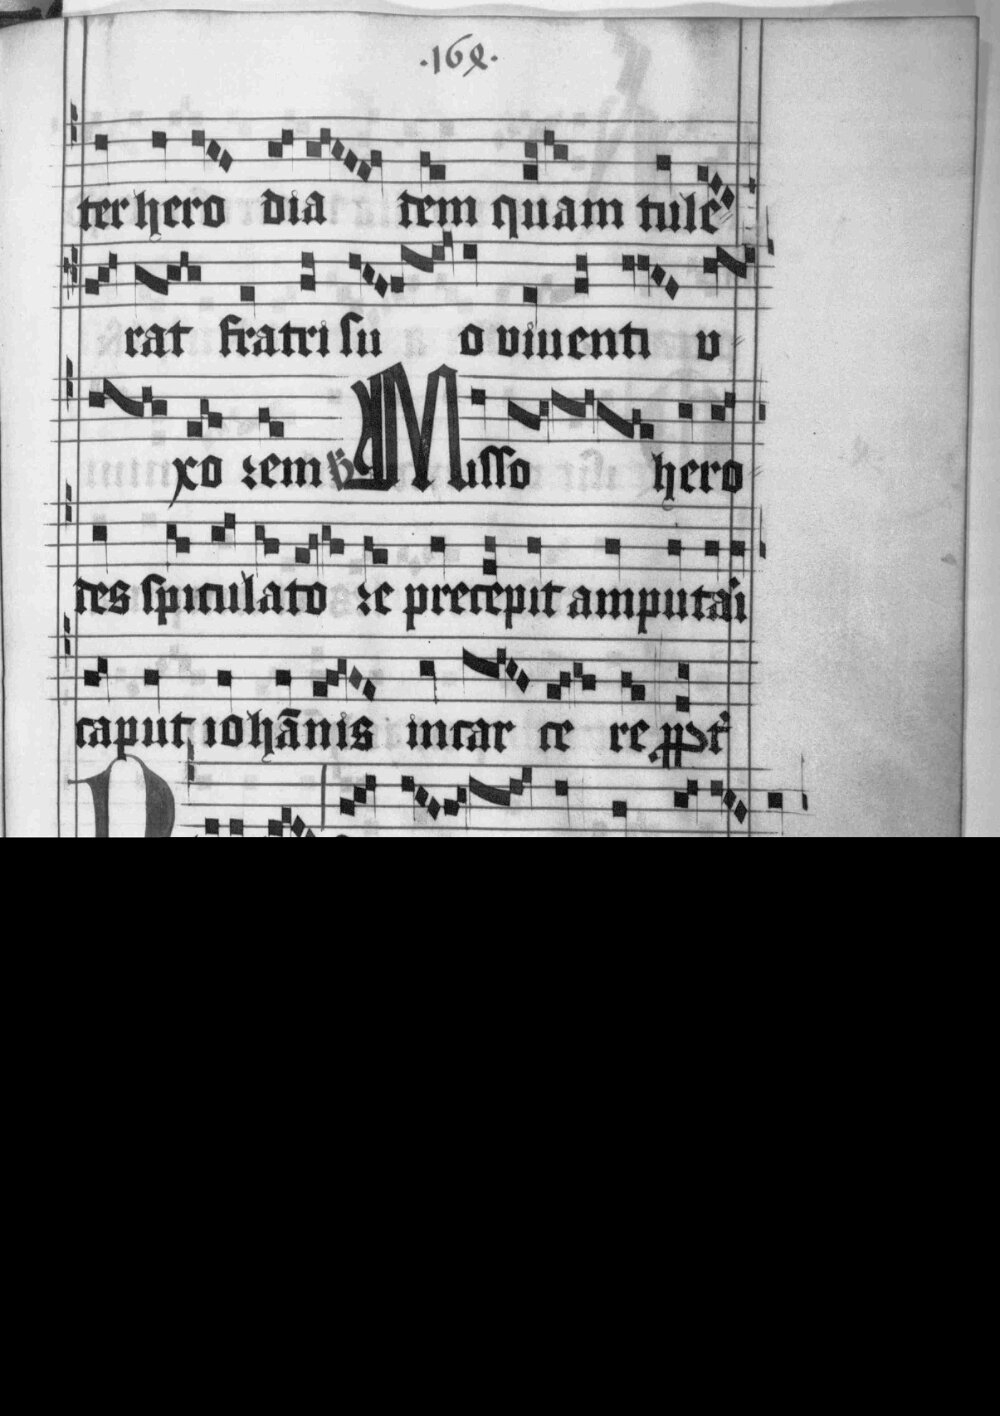 ter hero dia dem quam tule
rat fratri su o viuenti v
xo rem ℣ Misso hero
des spiculato re precepit amputari
caput iohãnis in car ce re ppt